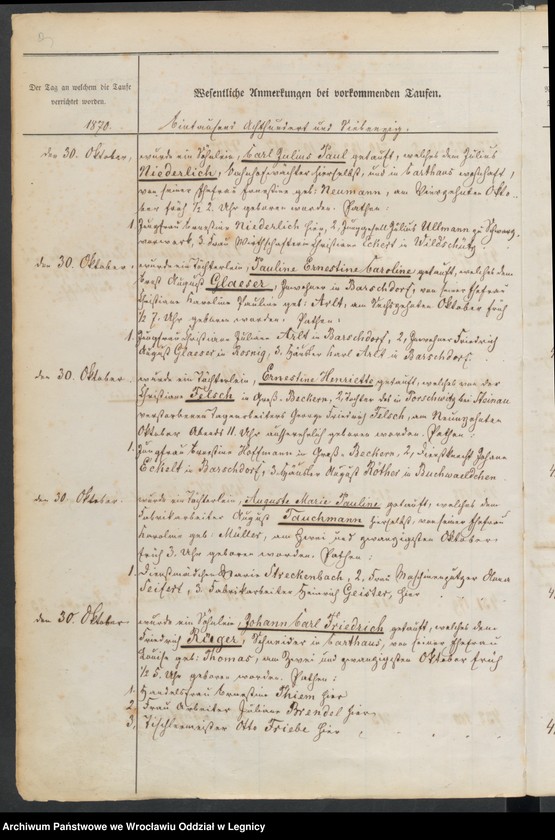 Der Tag an welchem die Taufe
verrichtet worden.
Wesentliche Anmerkungen bei vorkommenden Taufen.
1870.
Eintausend Achthundert und Siebenzig.
den 30. Oktober,
wurde ein Söhnlein, Carl Julius Paul getauft, welches dem Julius
Niederlich, Bahnhofwächter hierselbst, und in Carthaus wohnhaft,
von seiner Ehefrau Ernestine geb: Neumann, am Vierzehnten Okto-
ber früh ½ 2. Uhr geboren worden. Pathen:
1. Jungfrau Ernestine Niederlich hier, 2, Junggesell Julius Ullmann zu Schwarz-
vorwerk, 3. Frau Christiane Eckert in Wildschütz
den 30. Oktober.
wurde ein Töchterlein, Pauline Ernestine Caroline getauft, welches dem
Ernst August Glaeser, Inwohner in Barschdorf, von seiner Ehefrau
Christiane Karoline Pauline geb: Arlt, am Sechszehnten Oktober früh
½ 7. Uhr geboren worden. Pathen:
1. Jungfrau Christiane Juliane Arlt in Barschdorf, 2, Inwohner Friedrich
August Glaeser in Rosnig, 3. Häusler Karl Arlt in Barschdorf.
den 30. Oktober.
wurde ein Töchterlein, Ernestine Henriette getauft, welches von der
Christiane Felsch in Groß-Beckern, Tochter des in Porschwitz bei Steinau
verstorbenen Tagearbeiters George Friedrich Felsch, am Neunzehnten
Oktober Abends 11. Uhr außerehelich geboren worden. Pathen:
1. Jungfrau Ernestine Hoffmann in Groß-Beckern, 2, Dienstknecht Johann
Eckelt in Barschdorf, 3. Häusler August Röther in Buchwaeldchen.
den 30. Oktober.
wurde ein Töchterlein, Auguste Marie Pauline getauft, welches dem
Fabrikarbeiter August Tauchmann hierselbst, von seiner Ehefrau
Karoline geb: Müller, am Zwei und zwanzigsten Oktober,
früh 3. Uhr geboren worden. Pathen:
1. Dienstmädchen Marie Streckenbach, 2. Frau Maschinenputzer
Seifert, 3. Fabrikarbeiter Heinrich Geister, hier
den 30. Oktober
wurde ein Söhnlein Johann Carl Friedrich getauft, welches dem
Friedrich Rüger, Schneider in Carthaus, von seiner Ehefrau
Louise geb: Thomas, am Zwei und zwanzigsten Oktober früh
½ 5. Uhr geboren worden. Pathen:
1. Handelsfrau Ernestine Thiem hier
2. Frau Arbeiter Juliane Brendel hier
3, Tischlermeister Otto Friebe hier
Archiwum Państwowe we Wrocławiu Oddział w Legnicy